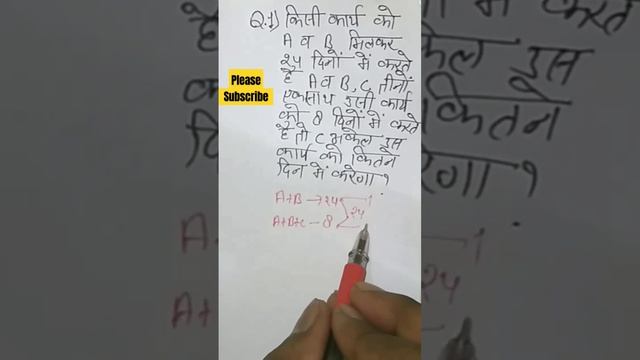 Q.1) किसी कार्य को
A व B मिलकर
२४ दिनों में करते
है A व B, C तीनों
एकसाथ इसी कार्य
को 8 दिनों में करते
है तो C अकेल इस
कार्य को कितने
दिन में करेगा?
Please
Subscribe
A+B → २४
A+B+C – 8
२४
1